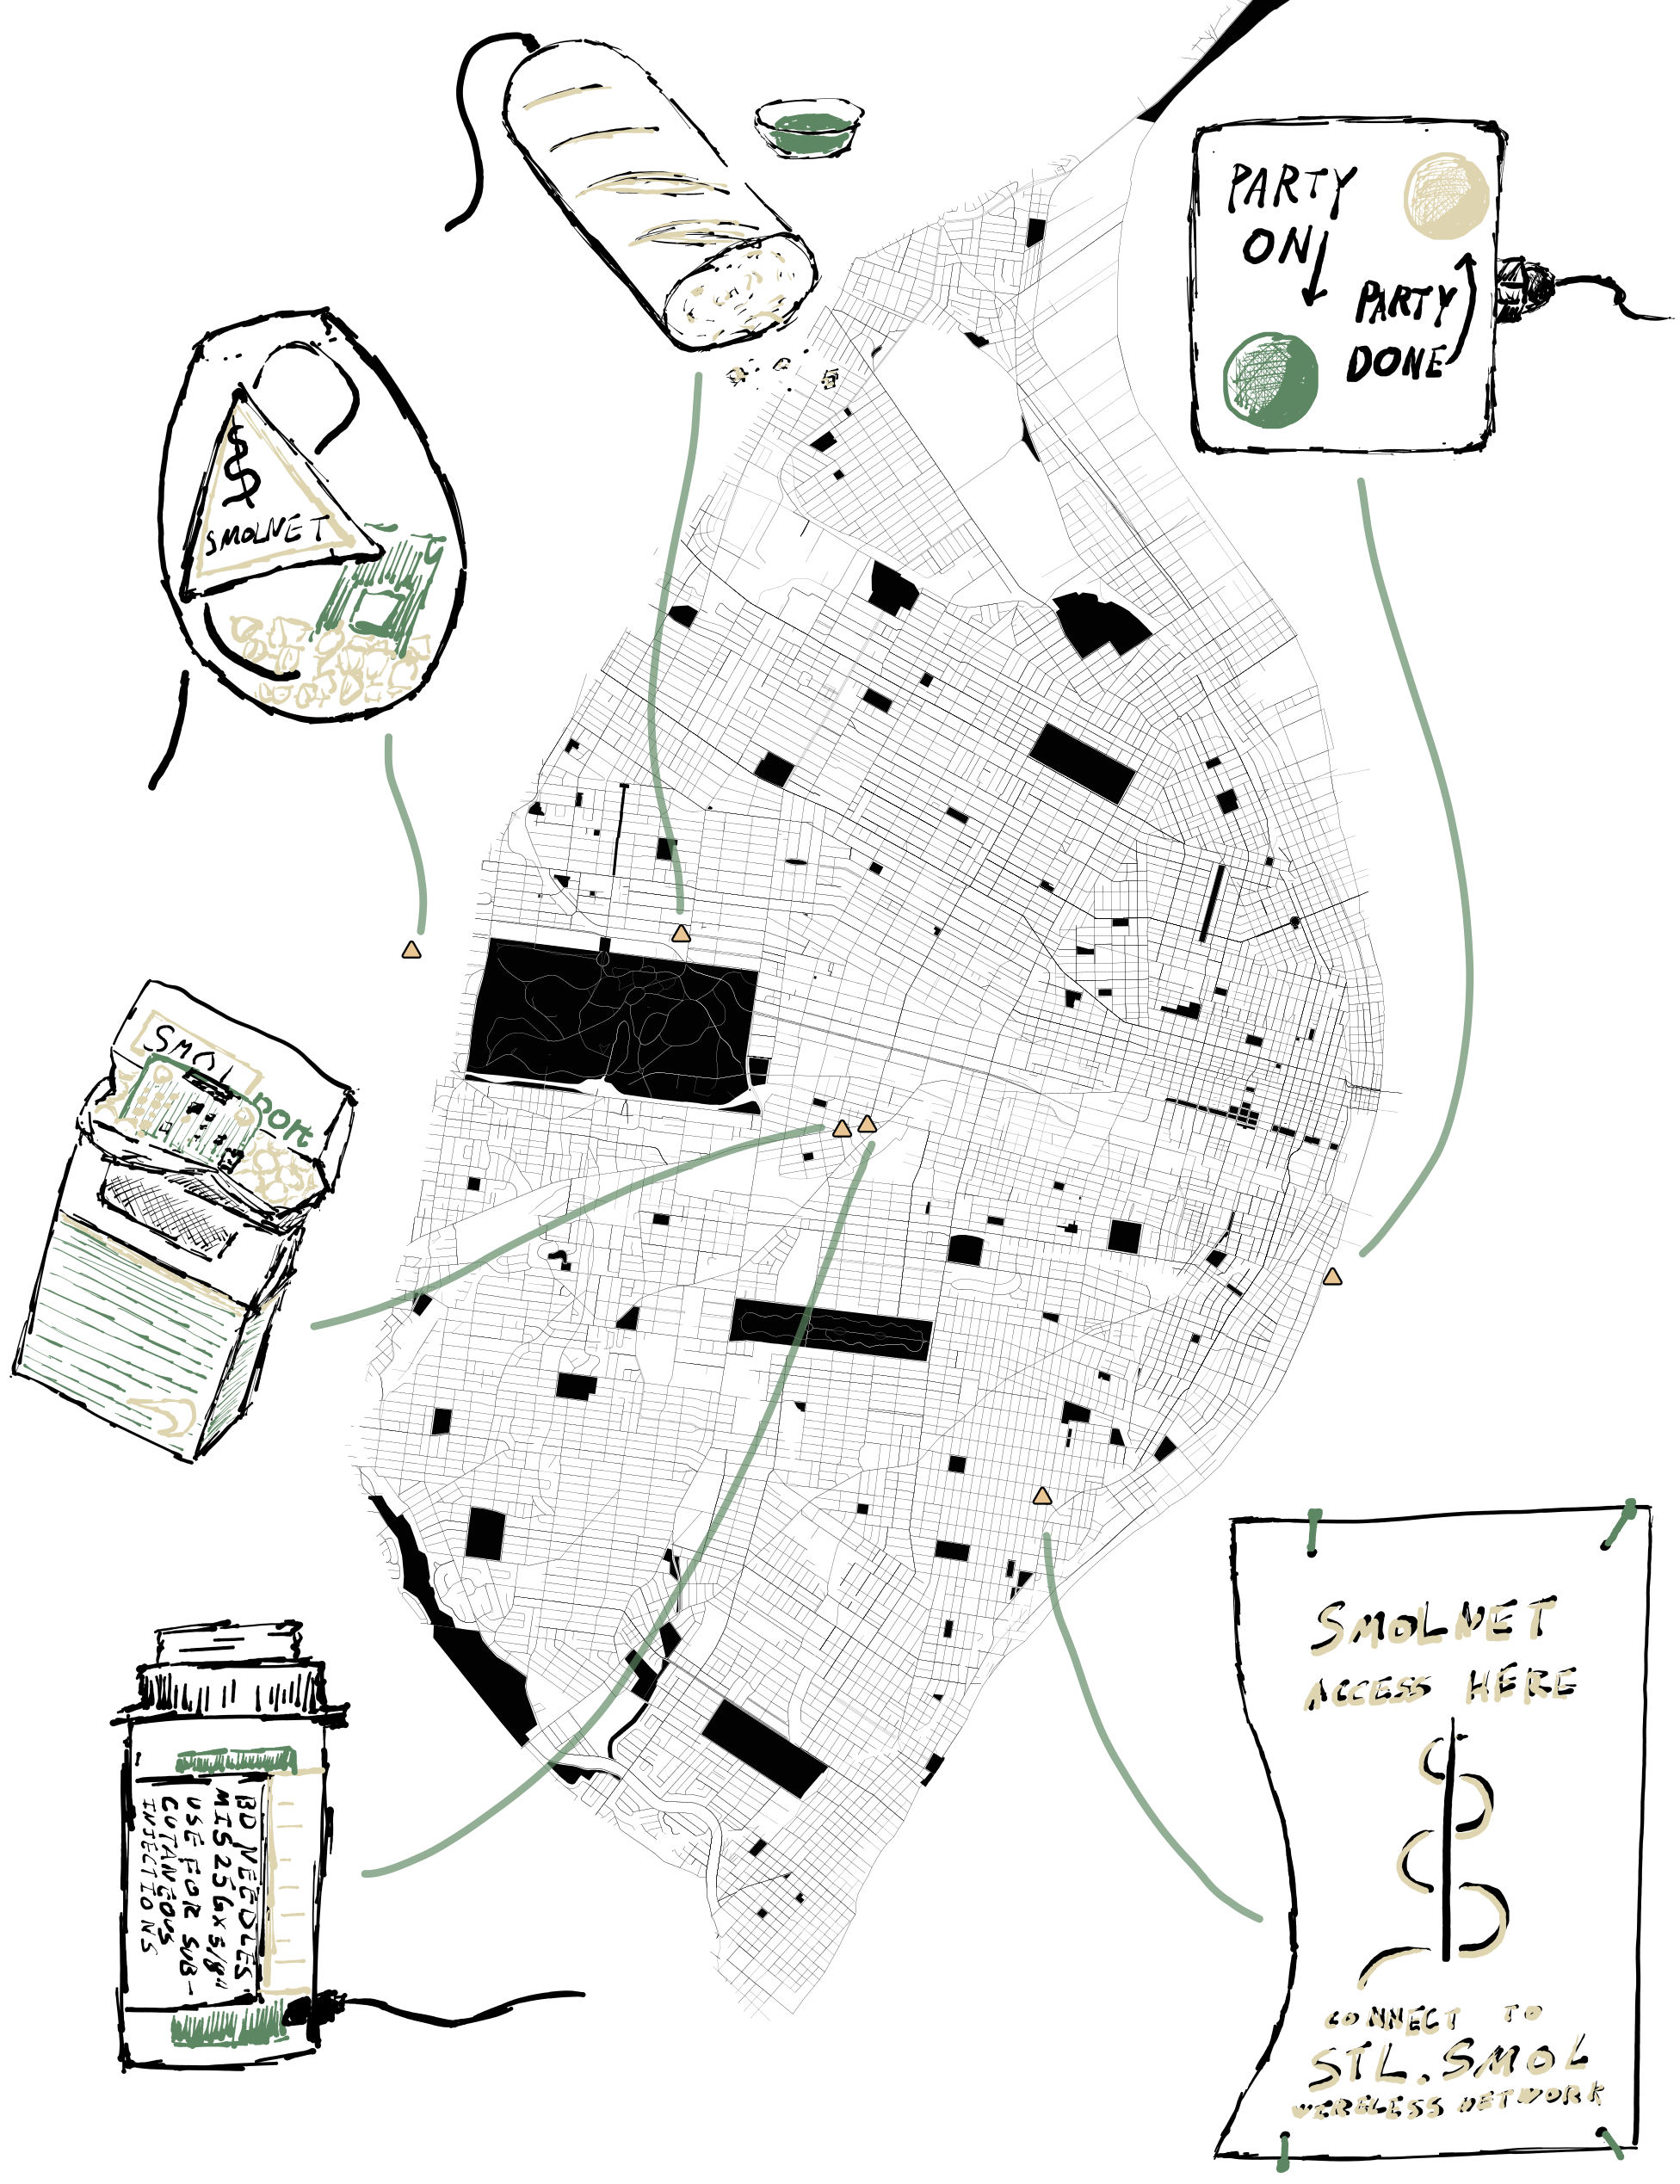 PARTY
ON
PARTY
DONE
$
SMOLNET
SMO
port
BD NEEDLES
MIS 25G x 5/8"
USE FOR SUB-
CUTANEOUS
INJECTIONS
SMOLNET
ACCESS HERE
CONNECT TO
STL.SMOL
WIRELESS NETWORK